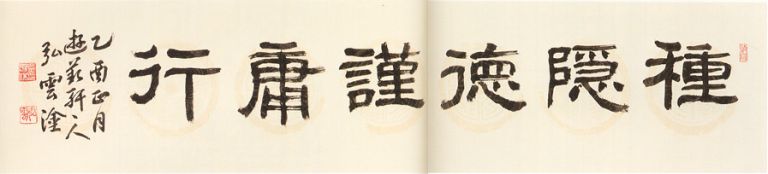 種隱德謹庸行
乙酉正月
遊藝軒人
弘雲塗